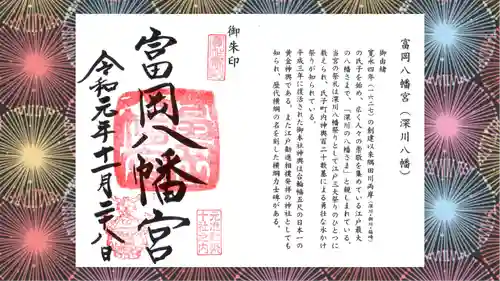 富岡八幡宮（深川八幡）
御由緒
寛永四年（一六二七）の創建以来隅田川両岸（深川・新川・箱崎）
の氏子を始め、広く人々の崇敬を集めている江戸最大
の八幡さまで、「深川の八幡さま」と親しまれている。
当宮の祭礼は深川八幡祭りとして江戸三大祭りのひとつに
数えられ、氏子町内神輿百二十数基による勇壮な水かけ
祭りが知られている。
平成三年に復活された御本社神輿は台輪幅五尺の日本一の
黄金神輿である。また江戸勧進相撲発祥の神社としても
知られ、歴代横綱の名を刻した横綱力士碑がある。
御朱印
富岡八幡宮
令和元年十一月二八日
元准勅祭
十社之内